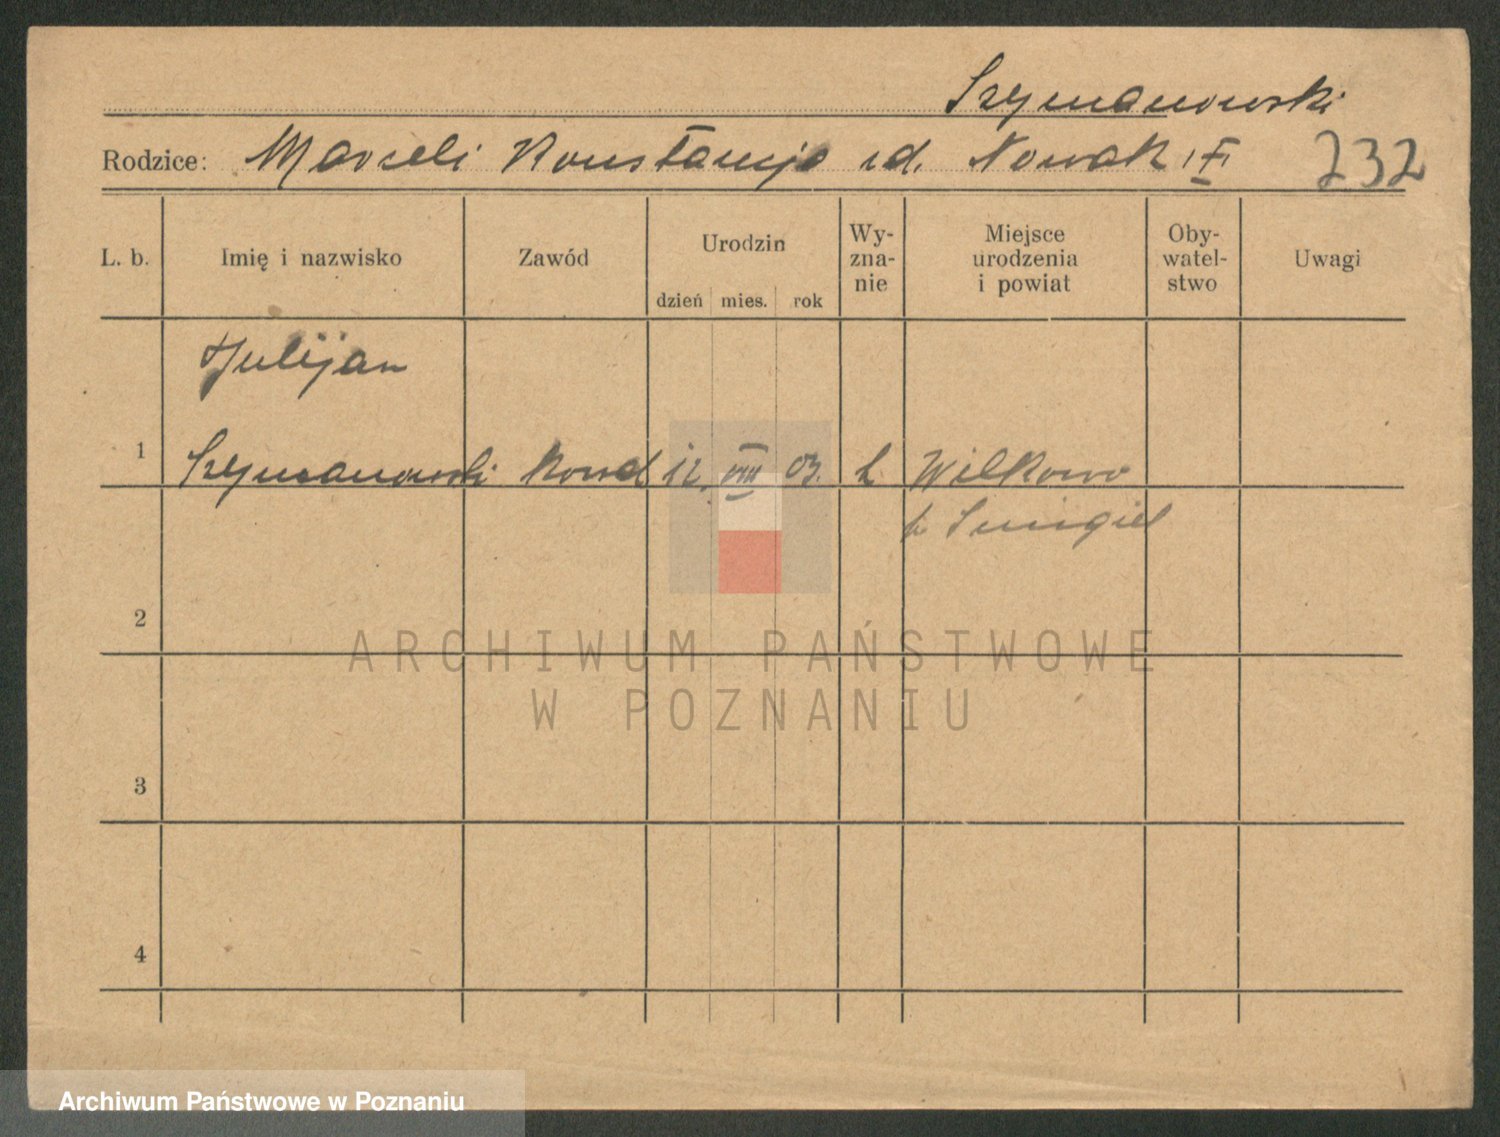 Szymanowski
Rodzice: Marceli Konstancja rd. Nowak 232
L. b. Imię i nazwisko Zawód Urodzin dzień mies. rok Wy-zna-nie Miejsce urodzenia i powiat Oby-watel-stwo Uwagi
Julijan
1 Szymanowski kowal 12. VIII 03. k Wilkowo
p Smigiel
2
3
4
ARCHIWUM PAŃSTWOWE
W POZNANIU
Archiwum Państwowe w Poznaniu